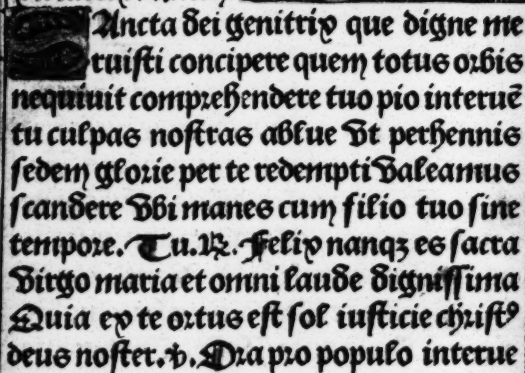 SAncta dei genitrix que digne me
ruisti concipere quem totus orbis
nequiuit comprehendere tuo pio interuē
tu culpas nostras ablue vt perhennis
sedem glorie per te redempti valeamus
scandere vbi manes cum filio tuo sine
tempore. Tu. ℟. Felix nanqꝫ es sacra
virgo maria et omni laude dignissima
Quia ex te ortus est sol iusticie christꝰ
deus noster. ℣. Ora pro populo interue